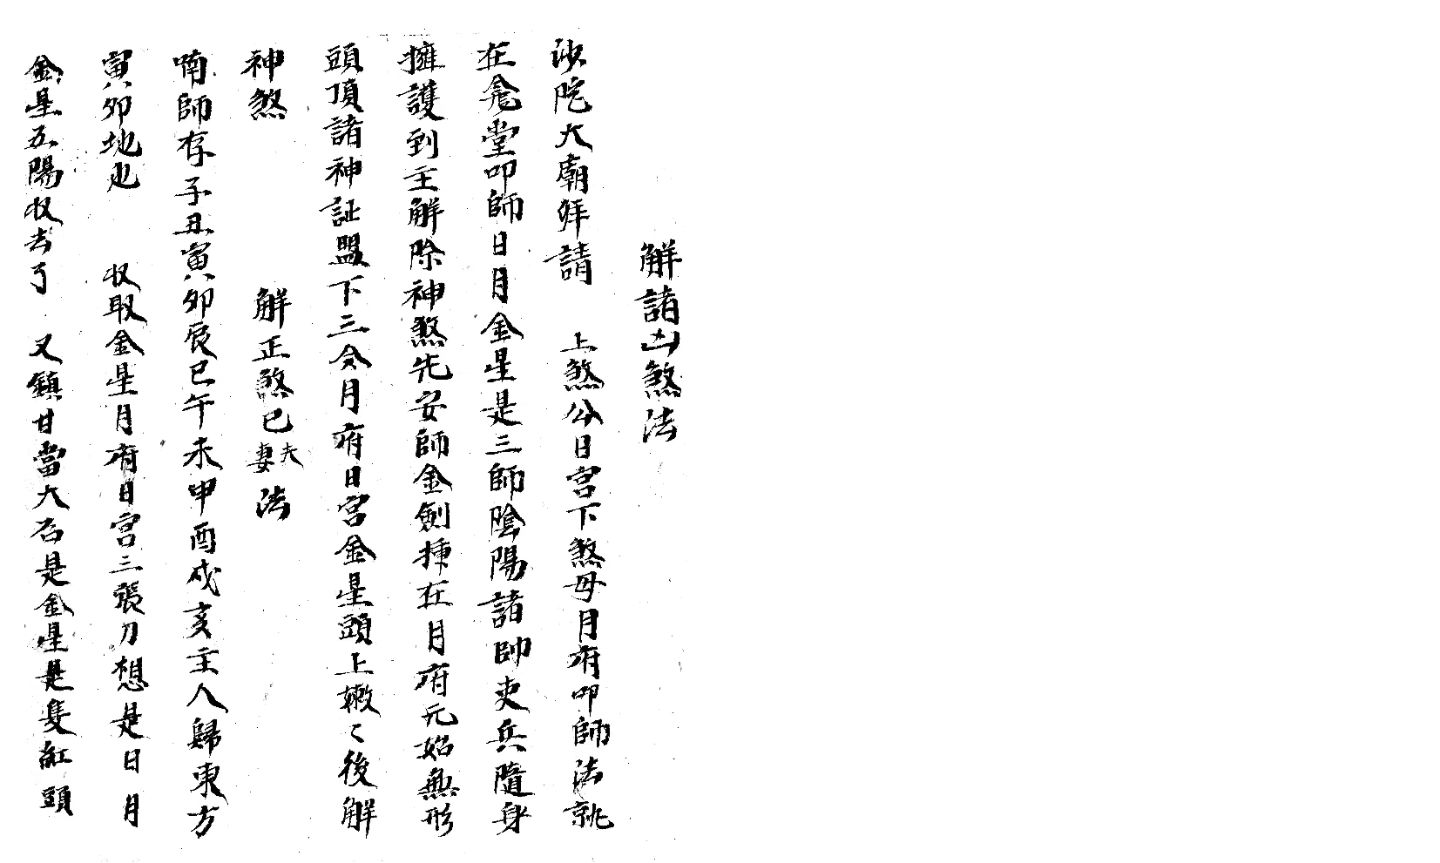 解諸凶煞法
沙陀大廟拜請　上煞公日宮下煞母月府叩師法就
在龛堂叩師日月金星是三師陰陽諸帥吏兵隨身
擁護到主解除神煞先安師金劍揷在月府元始無形
頭頂諸神証盟下三令月府日宮金星頭上轍〻後解
神煞　　解正煞已夫妻法
喃師存子丑寅卯辰巳午未申酉戌亥主人歸東方
寅卯地也　收取金星月府日宮三張刀想是日月
金星五陽收去了　又鎮甘當大石是金星是隻紅頭